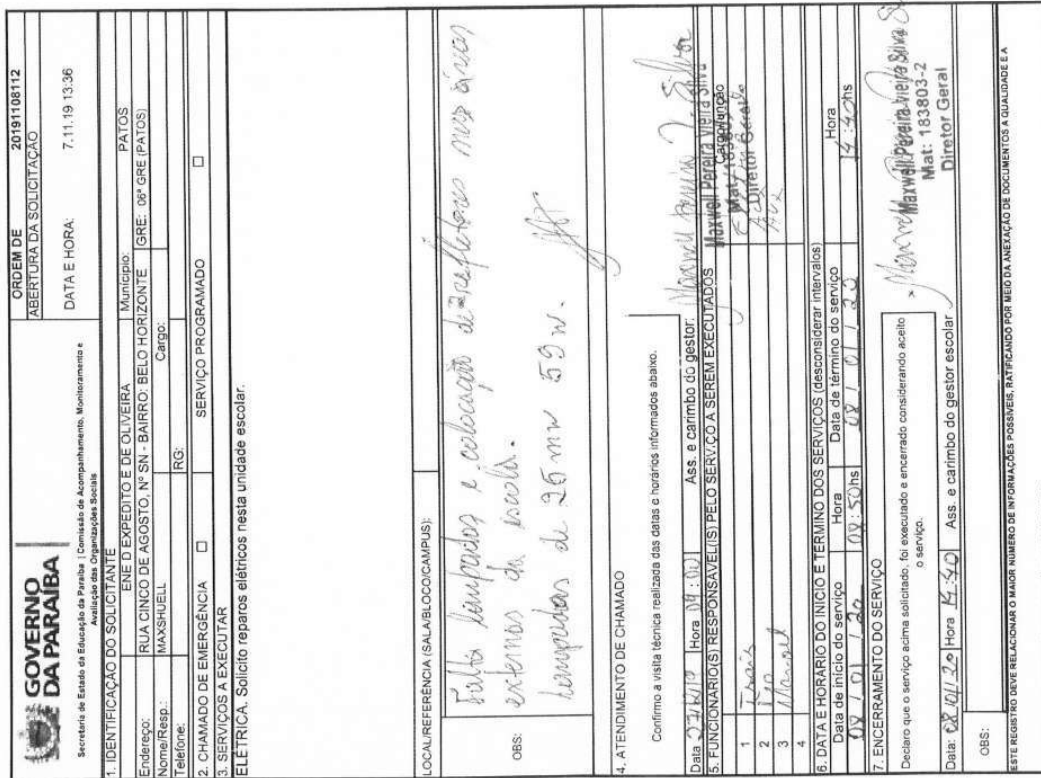 GOVERNO
DA PARAÍBA
Secretaria de Estado da Educação da Paraíba | Comissão de Acompanhamento, Monitoramento e
Avaliação das Organizações Sociais
ORDEM DE 20191108112
ABERTURA DA SOLICITAÇÃO
DATA E HORA: 7.11.19 13:36
1. IDENTIFICAÇÃO DO SOLICITANTE
ENE D EXPEDITO E DE OLIVEIRA Município: PATOS
Endereço: RUA CINCO DE AGOSTO, Nº SN - BAIRRO: BELO HORIZONTE GRE: 06ª GRE (PATOS)
Nome/Resp.: MAXSHUELL Cargo:
Telefone: RG:
2. CHAMADO DE EMERGÊNCIA ☐ SERVIÇO PROGRAMADO ☐
3. SERVIÇOS A EXECUTAR
ELÉTRICA. Solicito reparos elétricos nesta unidade escolar.
LOCAL/REFERÊNCIA (SALA/BLOCO/CAMPUS):
OBS:
Falta lâmpadas e colocação de refletores nas áreas
externas da escola.
lampadas de 25
4. ATENDIMENTO DE CHAMADO
Confirmo a visita técnica realizada das datas e horários informados abaixo.
Data Hora 09:00 Ass. e carimbo do gestor: Maxwell Pereira V. Silva
Maxwell Pereira Vieira Silva
Mat: 183803-2
Diretor Geral
5. FUNCIONÁRIO(S) RESPONSÁVEL(IS) PELO SERVIÇO A SEREM EXECUTADOS Cargo/função
1
2
3 Manoel
4
6. DATA E HORÁRIO DO INÍCIO E TERMINO DOS SERVIÇOS (desconsiderar intervalos)
Data de início do serviço Hora Data de término do serviço Hora
08/01/20 08:50hs 08/01/20 14:40hs
7. ENCERRAMENTO DO SERVIÇO
Declaro que o serviço acima solicitado, foi executado e encerrado considerando aceito
o serviço.
Maxwell Pereira Vieira Silva
Mat: 183803-2
Diretor Geral
Data: 08/01/20 Hora 14:40 Ass. e carimbo do gestor escolar
OBS:
ESTE REGISTRO DEVE RELACIONAR O MAIOR NÚMERO DE INFORMAÇÕES POSSÍVEIS, RATIFICANDO POR MEIO DA ANEXAÇÃO DE DOCUMENTOS A QUALIDADE E A